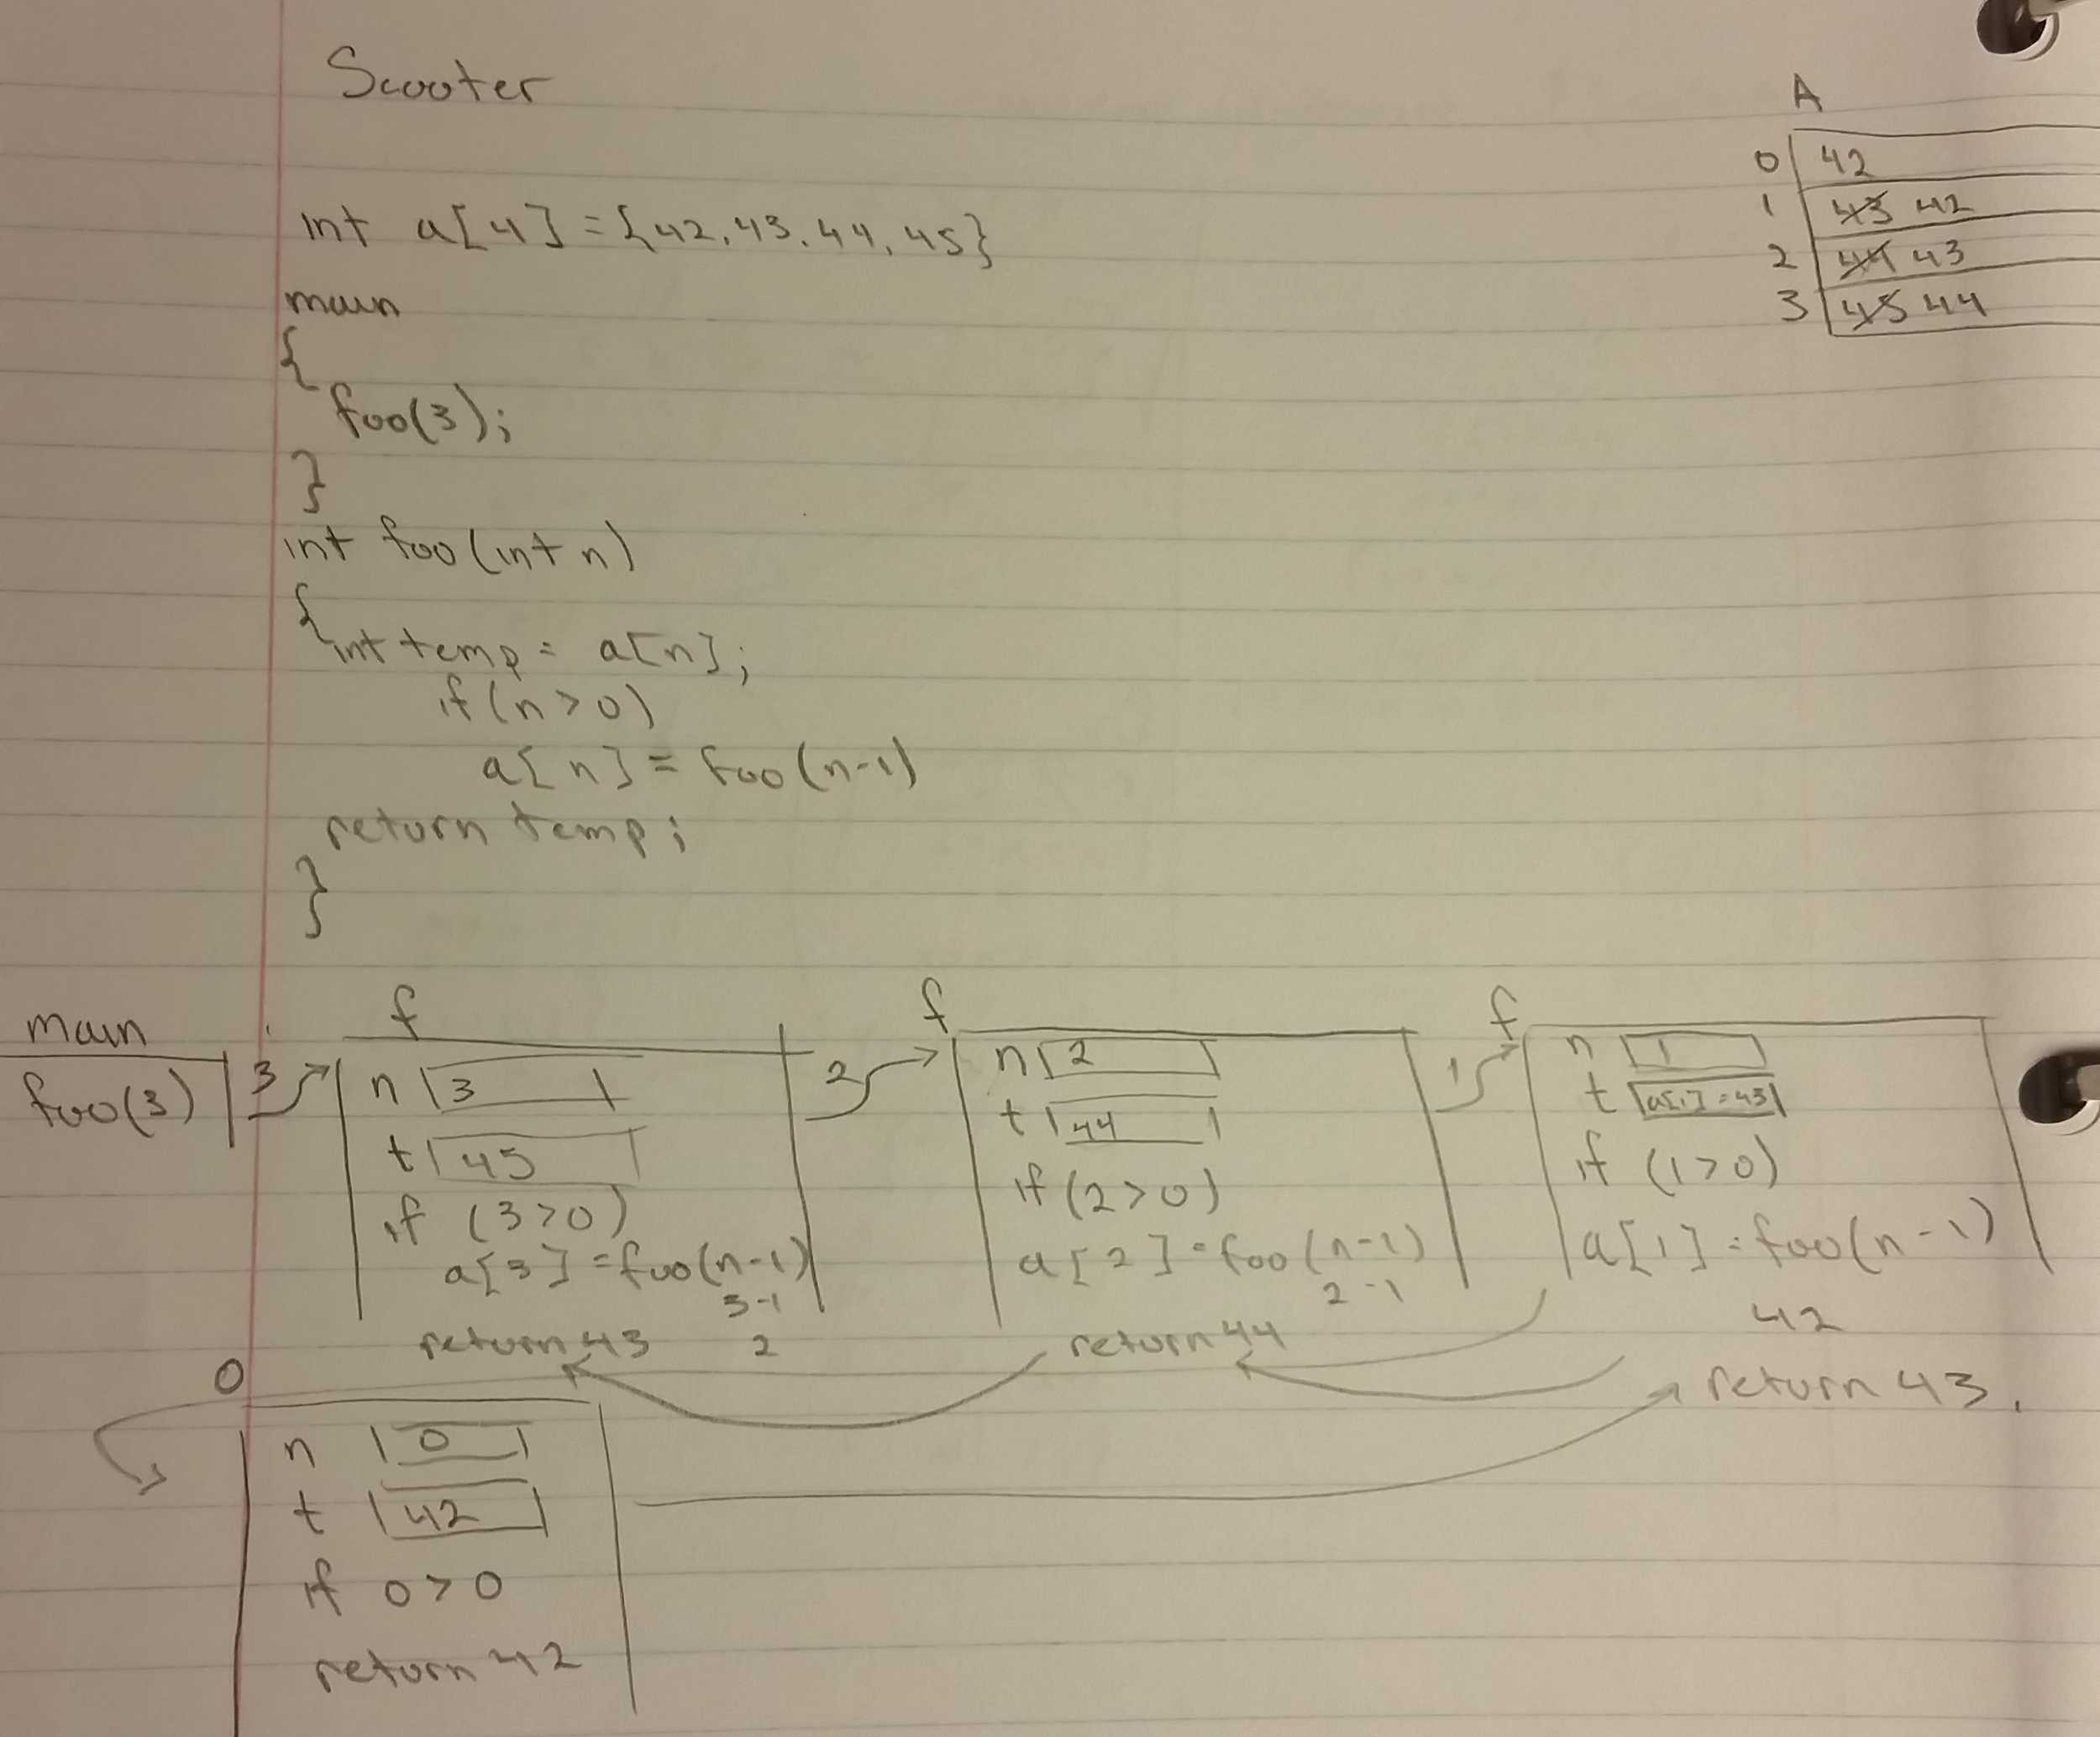 Scooter
A
0 42
1 43 42
2 44 43
3 45 44
int a[4] = {42, 43, 44, 45}
main
{
foo(3);
}
int foo(int n)
{int temp = a[n];
if(n>0)
a[n] = foo(n-1)
return temp;
}
main
foo(3)
3
f
n 3
t 45
if (3>0)
a[3] = foo(n-1)
3-1
2
return 43
2
f
n 2
t 44
if (2>0)
a[2] = foo(n-1)
2-1
return 44
1
f
n 1
t a[1] = 43
if (1>0)
a[1] = foo(n-1)
42
return 43.
0
n 0
t 42
if 0>0
return 42